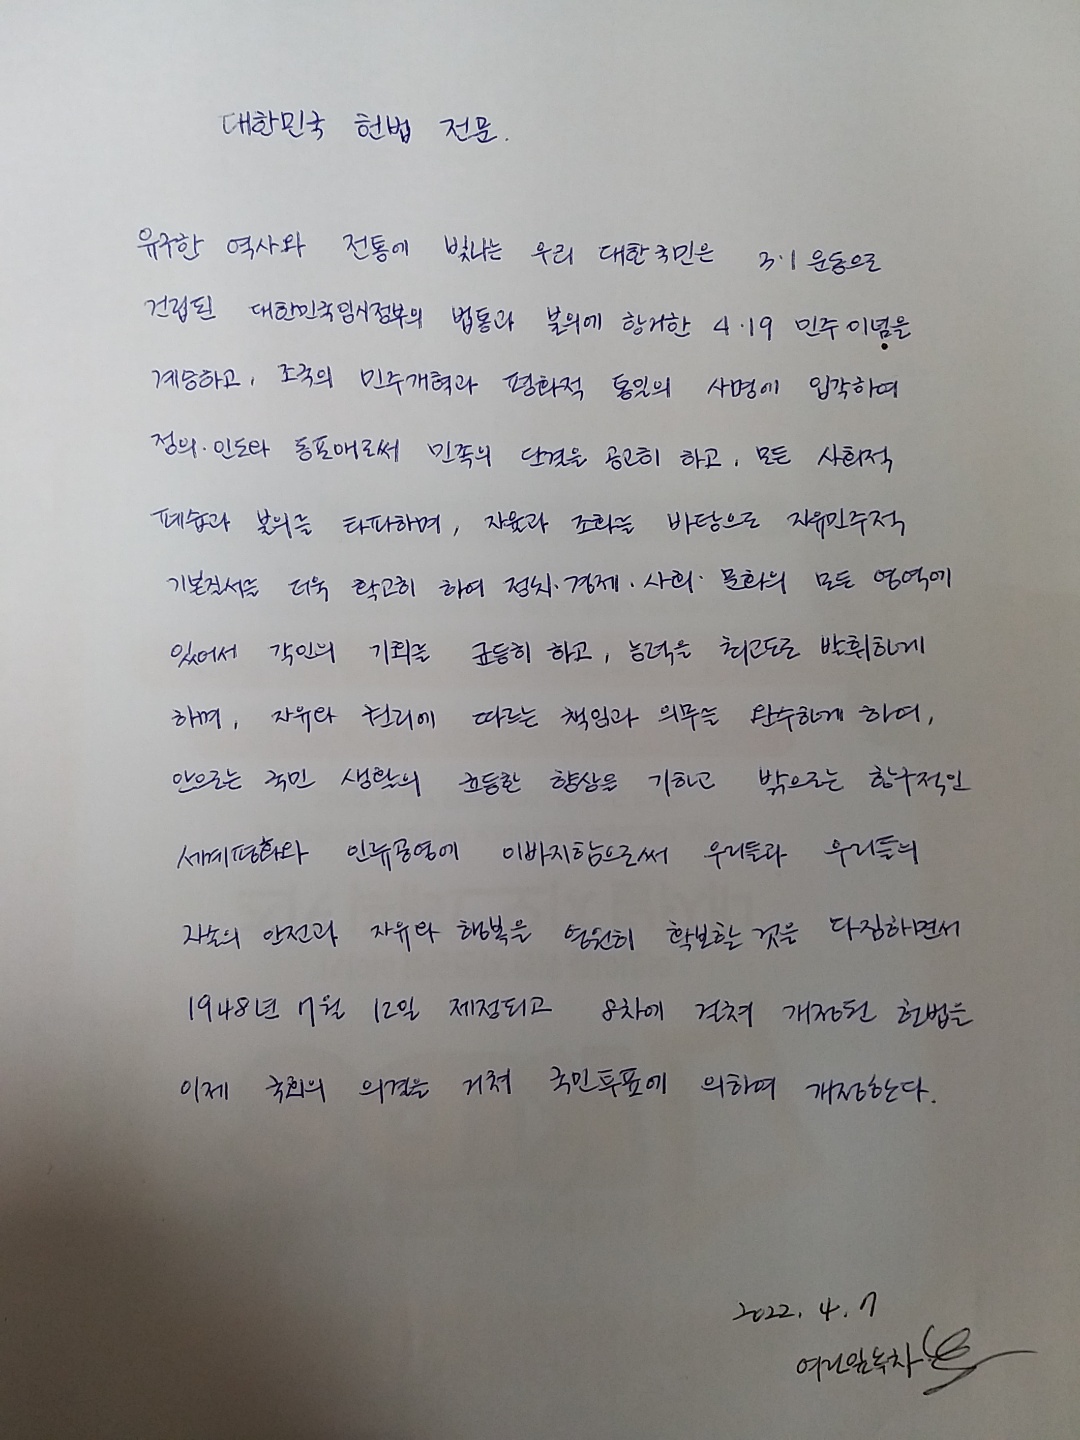 대한민국 헌법 전문.
유구한 역사와 전통에 빛나는 우리 대한국민은 3·1 운동으로
건립된 대한민국임시정부의 법통과 불의에 항거한 4·19 민주이념을
계승하고, 조국의 민주개혁과 평화적 통일의 사명에 입각하여
정의·인도와 동포애로써 민족의 단결을 공고히 하고, 모든 사회적
폐습과 불의를 타파하며, 자율과 조화를 바탕으로 자유민주적
기본질서를 더욱 확고히 하여 정치·경제·사회·문화의 모든 영역에
있어서 각인의 기회를 균등히 하고, 능력을 최고도로 발휘하게
하며, 자유와 권리에 따르는 책임과 의무를 완수하게 하여,
안으로는 국민 생활의 균등한 향상을 기하고 밖으로는 항구적인
세계평화와 인류공영에 이바지함으로써 우리들과 우리들의
자손의 안전과 자유와 행복을 영원히 확보할 것을 다짐하면서
1948년 7월 12일 제정되고 8차에 걸쳐 개정된 헌법을
이제 국회의 의결을 거쳐 국민투표에 의하여 개정한다.
2022. 4. 7
여린잎녹차